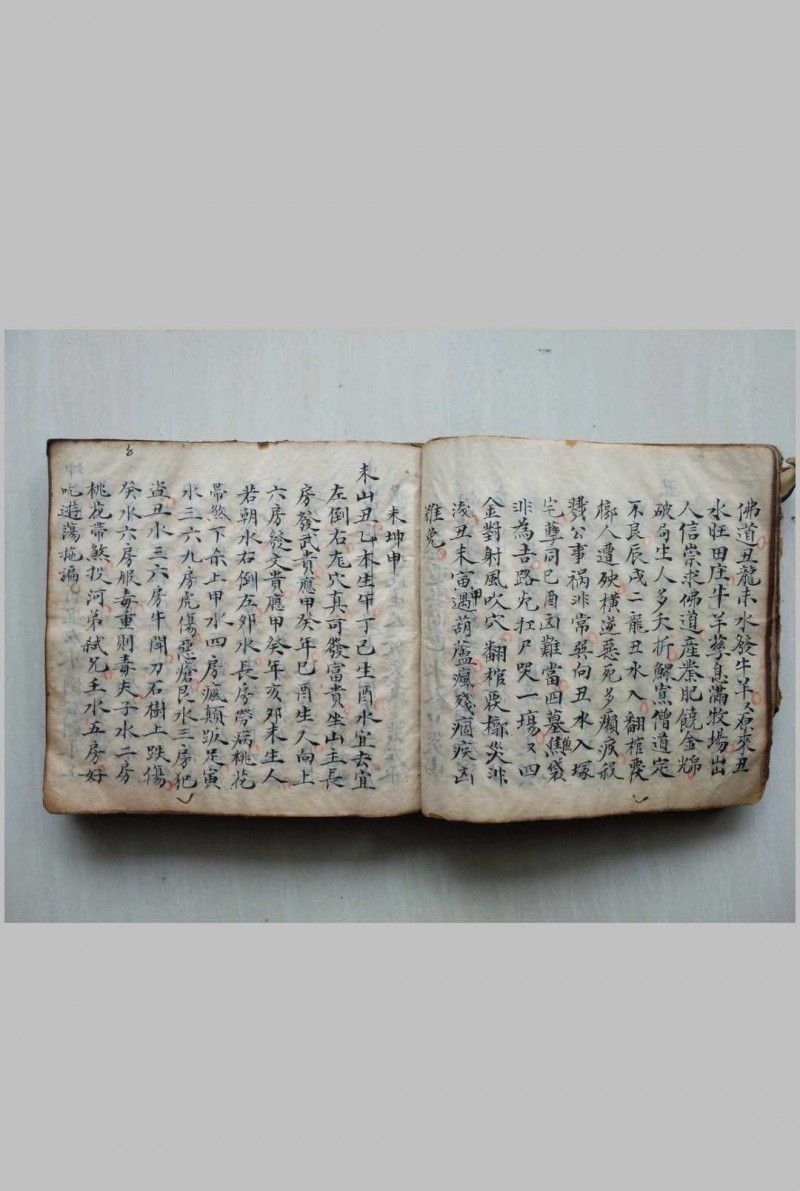 佛道丑龍未水發牛羊又原來丑
水旺田庄牛羊孳息滿牧場出
人信崇求佛道産業肥饒金
破局生人多夭折鰥寡僧道定
不良辰戌二龍丑水入翻棺覆
槨人遭殃横逆惡死多癩疾殺
戮公事祸非常巽向丑水入塚
宅孽同巳酉凶難當四墓袋
非為吉路死扛尸哭一塲又四
金對射風吹穴翻棺覆槨災非
浅丑未寅申遇葫蘆瘋殘痼疾凶
難免
未坤申
未山丑乙本生午丁己生酉水宜去宜
左倒右穴真可發富貴坐山主長
房發武貴應甲癸年巳酉生人向上
六房發文貴應甲癸年亥卯未生人
若朝水右倒左卯水長房帶病桃花
帶煞下上甲水四房瘋顛跛足寅
水三六九房虎傷惡瘡艮水三房犯
盜丑水三六房牛閗刀石樹上跌傷
癸水六房服毒重則毒夫子水二房
桃花帶煞投河弟弒兄壬水五房好
吃遊蕩拖騙